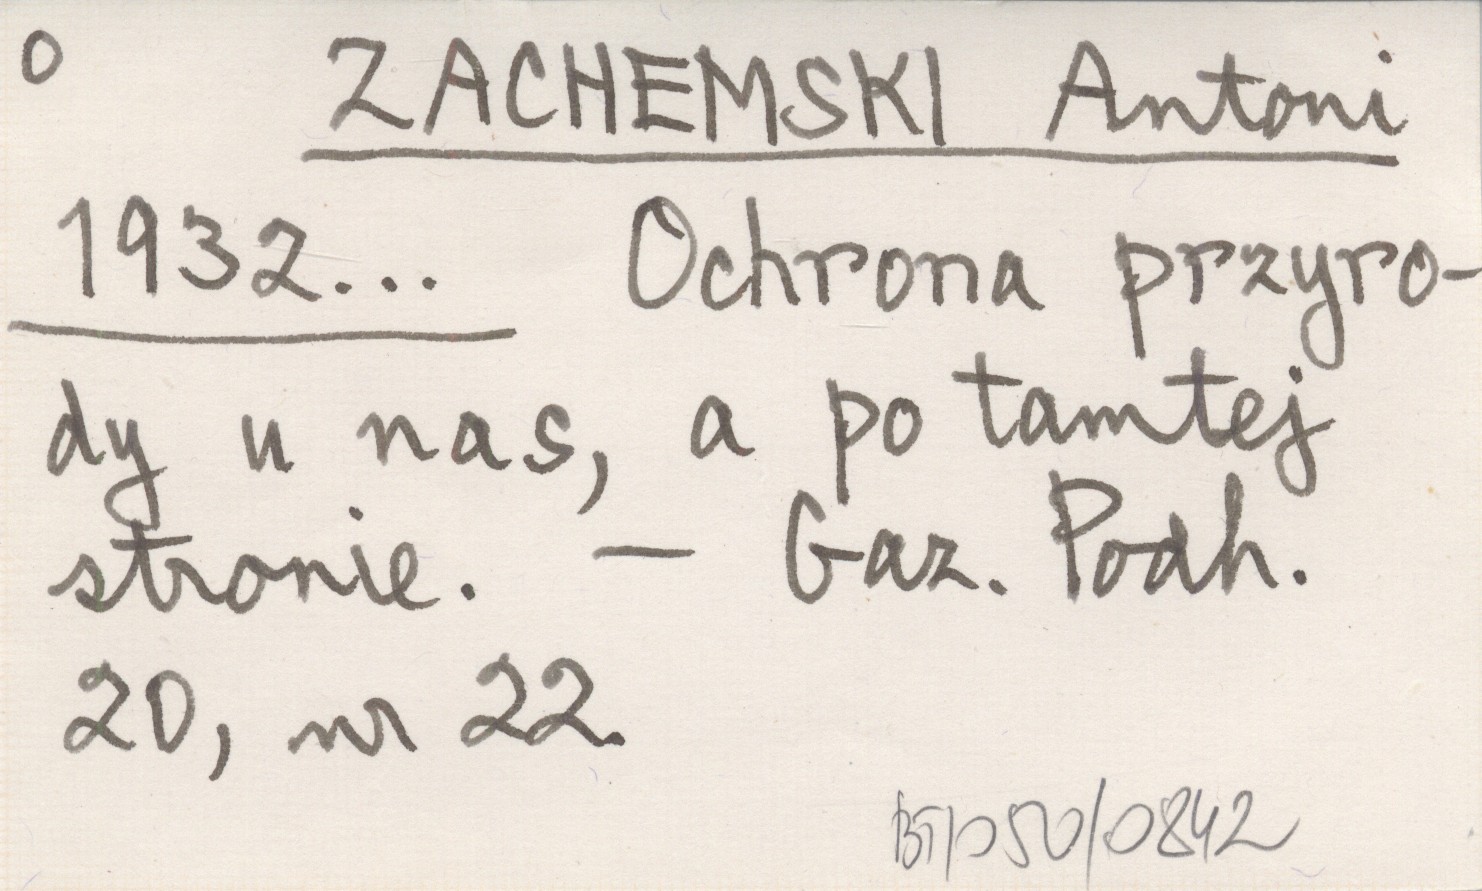 O ZACHEMSKI Antoni
1932... Ochrona przyro-
dy u nas, a po tamtej
stronie. — Gaz. Podh.
20, nr 22.
BT/050/0842